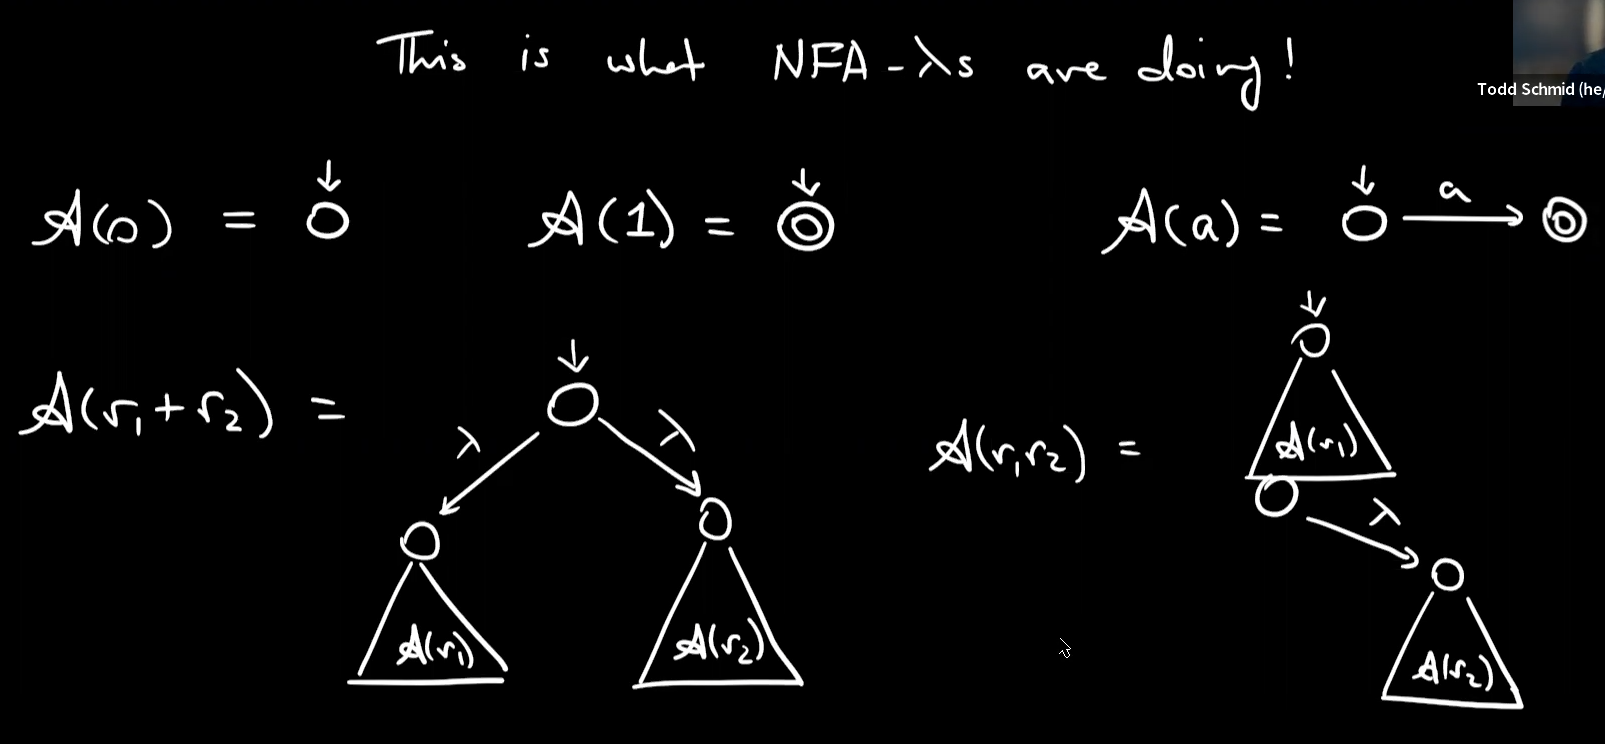 This is what NFA-λs are doing!
Todd Schmid (he/
A(0) =
A(1) =
A(a) =
a
A(r₁+r₂) =
λ
λ
A(r₁)
A(r₂)
A(r₁r₂) =
A(r₁)
λ
A(r₂)